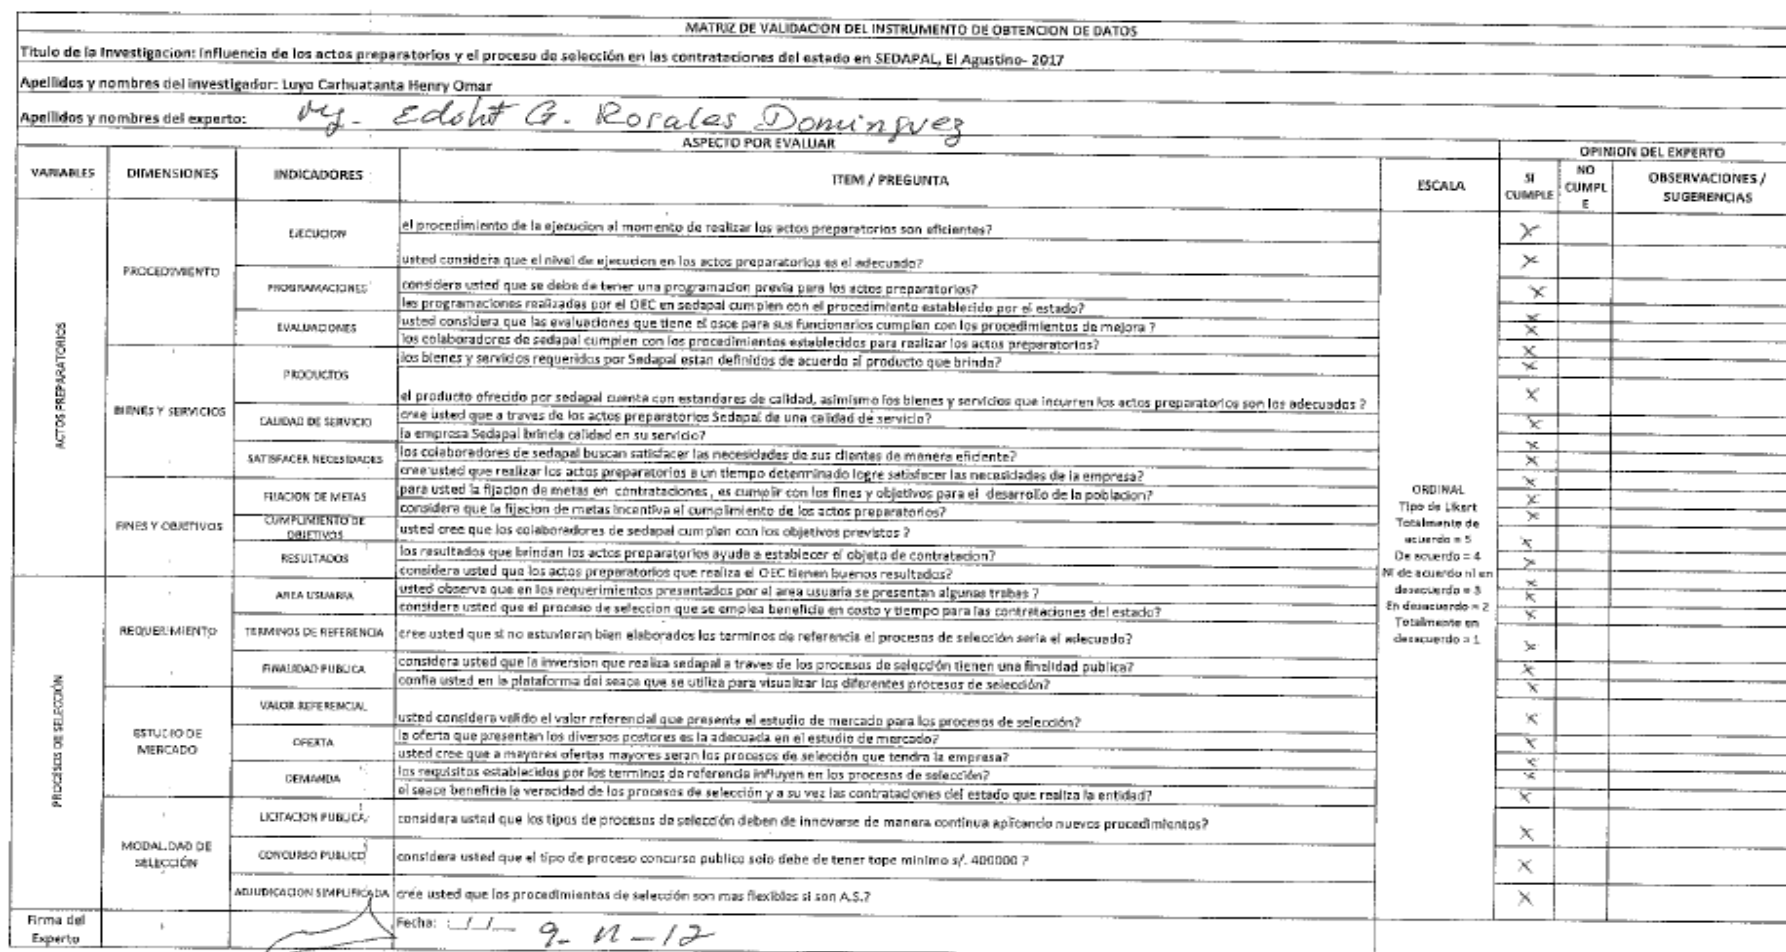 MATRIZ DE VALIDACION DEL INSTRUMENTO DE OBTENCION DE DATOS
Titulo de la Investigacion: Influencia de los actos preparatorios y el proceso de selección en las contrataciones del estado en SEDAPAL, El Agustino- 2017
Apellidos y nombres del investigador: Luyo Carhuatanta Henry Omar
Apellidos y nombres del experto: Mg. Edoht G. Rosales Dominguez
ASPECTO POR EVALUAR
OPINION DEL EXPERTO
VARIABLES DIMENSIONES INDICADORES ITEM / PREGUNTA ESCALA SI CUMPLE NO CUMPLE OBSERVACIONES / SUGERENCIAS
ACTOS PREPARATORIOS
PROCEDIMIENTO
EJECUCION
el procedimiento de la ejecucion al momento de realizar los actos preparatorios son eficientes? X
usted considera que el nivel de ejecucion en los actos preparatorios es el adecuado? X
PROGRAMACIONES
considera usted que se debe de tener una programacion previa para los actos preparatorios? X
las programaciones realizadas por el OEC en sedapal cumplen con el procedimiento establecido por el estado? X
EVALUACIONES
usted considera que las evaluaciones que tiene el osce para sus funcionarios cumplen con los procedimientos de mejora ? X
los colaboradores de sedapal cumplen con los procedimientos establecidos para realizar los actos preparatorios? X
BIENES Y SERVICIOS
PRODUCTOS
los bienes y servicios requeridos por Sedapal estan definidos de acuerdo al producto que brinda? X
el producto ofrecido por sedapal cuenta con estandares de calidad, asimismo los bienes y servicios que incurren los actos preparatorios son los adecuados ? X
CALIDAD DE SERVICIO
cree usted que a traves de los actos preparatorios Sedapal de una calidad de servicio? X
la empresa Sedapal brinda calidad en su servicio? X
SATISFACER NECESIDADES
los colaboradores de sedapal buscan satisfacer las necesidades de sus clientes de manera eficiente? X
cree usted que realizar los actos preparatorios a un tiempo determinado logre satisfacer las necesidades de la empresa? X
FINES Y OBJETIVOS
FIJACION DE METAS
para usted la fijacion de metas en contrataciones , es cumplir con los fines y objetivos para el desarrollo de la poblacion? X
considera que la fijacion de metas incentiva el cumplimiento de los actos preparatorios? X
CUMPLIMIENTO DE OBJETIVOS
usted cree que los colaboradores de sedapal cumplen con los objetivos previstos ? X
RESULTADOS
los resultados que brindan los actos preparatorios ayuda a establecer el objeto de contratacion? X
considera usted que los actos preparatorios que realiza el OEC tienen buenos resultados? X
ORDINAL
Tipo de Likert
Totalmente de
acuerdo = 5
De acuerdo = 4
Ni de acuerdo ni en
desacuerdo = 3
En desacuerdo = 2
Totalmente en
desacuerdo = 1
PROCESOS DE SELECCIÓN
REQUERIMIENTO
AREA USUARIA
usted observa que en los requerimientos presentados por el area usuaria se presentan algunas trabas ? X
considera usted que el proceso de seleccion que se emplea beneficia en costo y tiempo para las contrataciones del estado? X
TERMINOS DE REFERENCIA
cree usted que si no estuvieran bien elaborados los terminos de referencia el procesos de selección seria el adecuado? X
FINALIDAD PUBLICA
considera usted que la inversion que realiza sedapal a traves de los procesos de selección tienen una finalidad publica? X
confia usted en la plataforma del seace que se utiliza para visualizar los diferentes procesos de selección? X
ESTUDIO DE MERCADO
VALOR REFERENCIAL
usted considera valido el valor referencial que presenta el estudio de mercado para los procesos de selección? X
OFERTA
la oferta que presentan los diversos postores es la adecuada en el estudio de mercado? X
usted cree que a mayores ofertas mayores seran los procesos de selección que tendra la empresa? X
DEMANDA
los requisitos establecidos por los terminos de referencia influyen en los procesos de selección? X
el seace beneficia la veracidad de los procesos de selección y a su vez las contrataciones del estado que realiza la entidad? X
MODALIDAD DE SELECCIÓN
LICITACION PUBLICA
considera usted que los tipos de procesos de selección deben de innovarse de manera continua aplicando nuevos procedimientos? X
CONCURSO PUBLICO
considera usted que el tipo de proceso concurso publico solo debe de tener tope minimo s/. 400000 ? X
ADJUDICACION SIMPLIFICADA
cree usted que los procedimientos de selección son mas flexibles si son A.S.? X
Firma del Experto
Fecha: : / / 9- 11 - 17